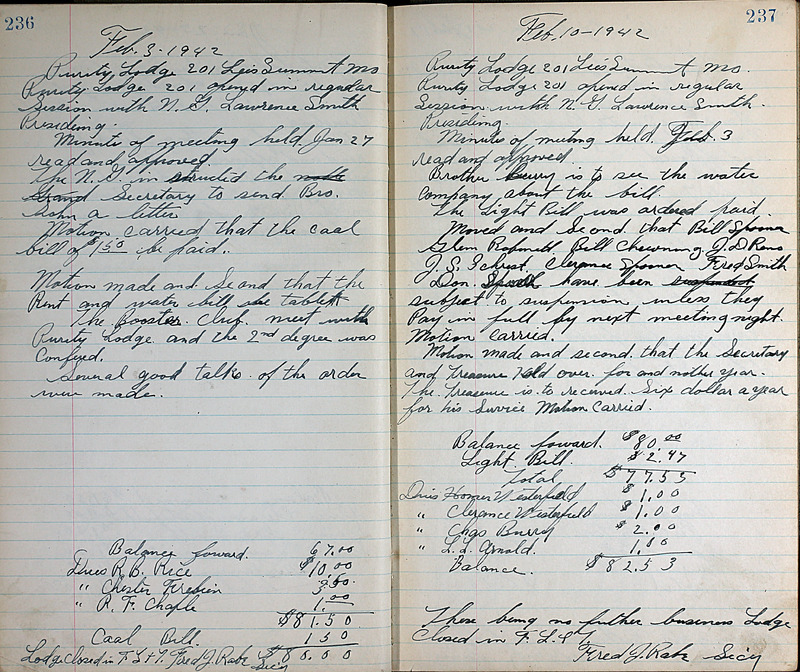 236
Feb. 3-1942
Purity Lodge 201 Leis Summit Mo
Purity Lodge 201 opened in regular
Session with N. G. Lawrence Smith
Presiding.
Minute of meeting held Jan 27
read and approved.
The N. G. in structed the noble
Grand Secretary to send Bro.
a letter
Motion carried that the caal
bill of $1.50 be paid.
Motion made and Second that the
Rent and water bill be tabled
The Booster Club meet with
Purity Lodge and the 2nd degree was
Confered.
Several good talks of the order
were made.
Balance foward. 67.00
Dues R. B. Rice $10.00
" Chester 3.50
" R. F. Chaple 1.00
$81.50
Caal Bill 150
Lodge Closed in F L & T. Fred J. Rabe Sec'y $80.00
237
Feb. 10-1942
Purity Lodge 201 Leis Summit Mo.
Purity Lodge 201 opened in regular
Session with N. G. Lawrence Smith.
Presiding.
Minute of meeting held Feb. 3
read and approved
Brother is to see the water
Company about the bill.
The Light Bill was ordered paid.
Moved and Second that Bill Spooner
Glenn Bill Chewning J. D. Reno
J. S. Clerance Spooner Fred Smith
Don. have been suspended
subject to suspension unless they
Pay in full by next meeting night.
Motion carried.
Motion made and second that the Secretary
and Treasure Hold over for and nother year.
The Treasure is to received Six dollar a year
for his Service Motion Carried.
Balance foward. $80.00
Light Bill. $2.47
Total $77.55
Dues Homer Westerfield $1.00
" Clerance Westerfield $1.00
" Chas Burry $2.00
" L. L. Arnold. 1.00
Balance. $82.53
These being no futher business Lodge
Closed in F. L. &T
Fred J. Rabe Sec'y